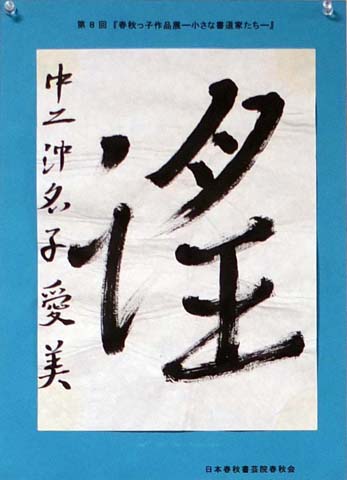 第8回『春秋っ子作品展ー小さな書道家たちー』
謡
中二 沖名子 愛美
日本春秋書芸院春秋会